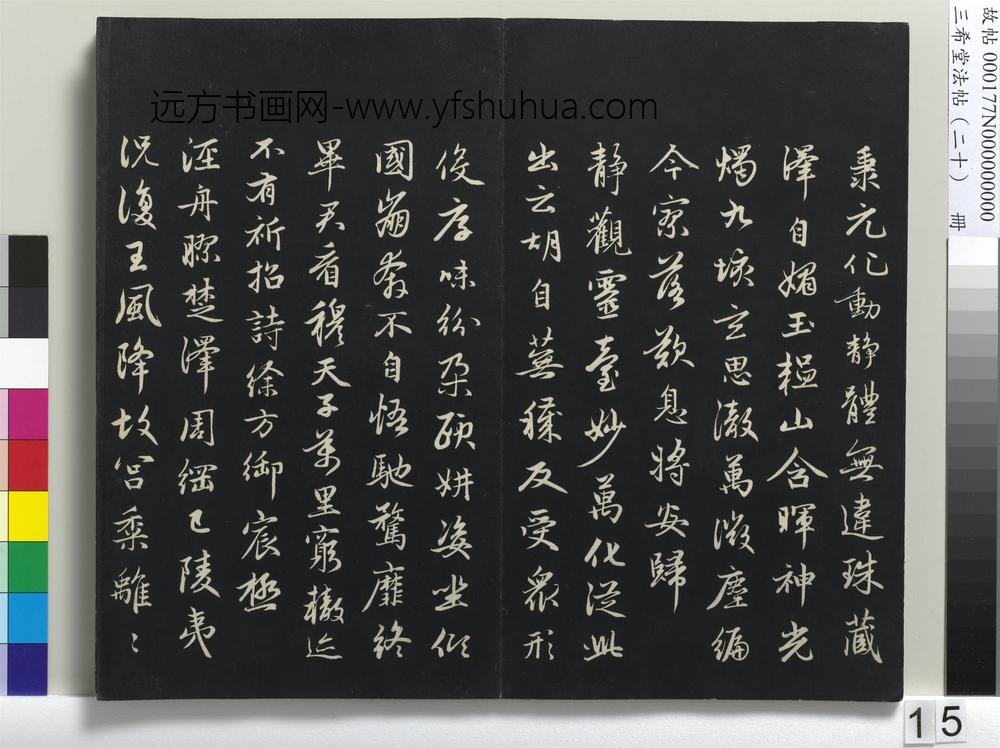 故帖 000177N00000000000
三希堂法帖（二十） 冊
远方书画网-www.yfshuhua.com
秉元化動靜體無違珠藏
澤自媚玉韞山含暉神光
燭九垓玄思澈萬微塵編
今寥落歎息將安歸
靜觀靈臺妙萬化從此
出云胡自蕪穢反受眾形
役厚味紛朶頤妍姿坐傾
國崩奔不自悟馳騖靡終
畢君看穆天子萬里窮轍迹
不有祈招詩徐方御宸極
涇舟膠楚澤周綱已陵夷
況復王風降故宮黍離〻
15